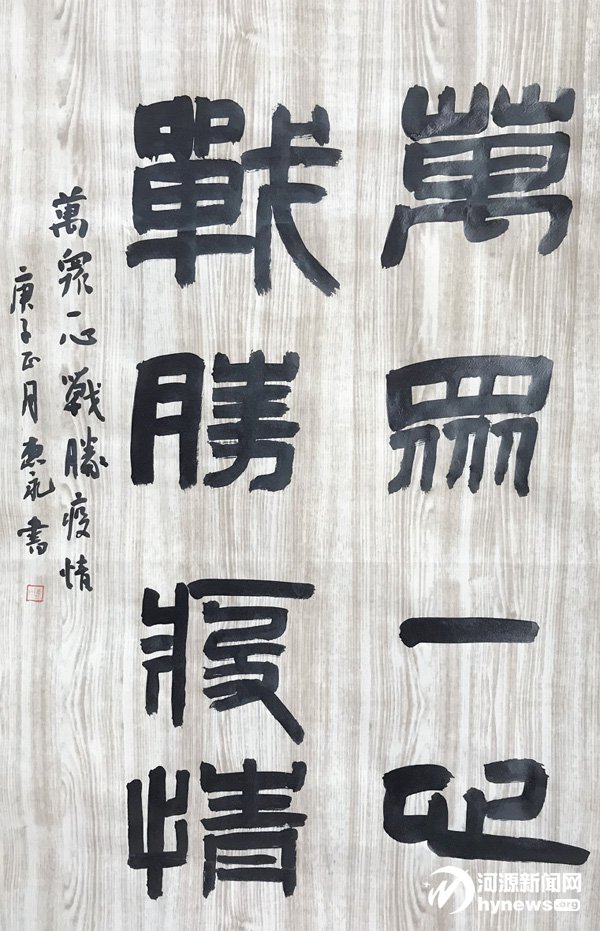 萬眾一心
戰勝疫情
萬眾一心戰勝疫情
庚子正月惠永書
河源新闻网
hynews.org